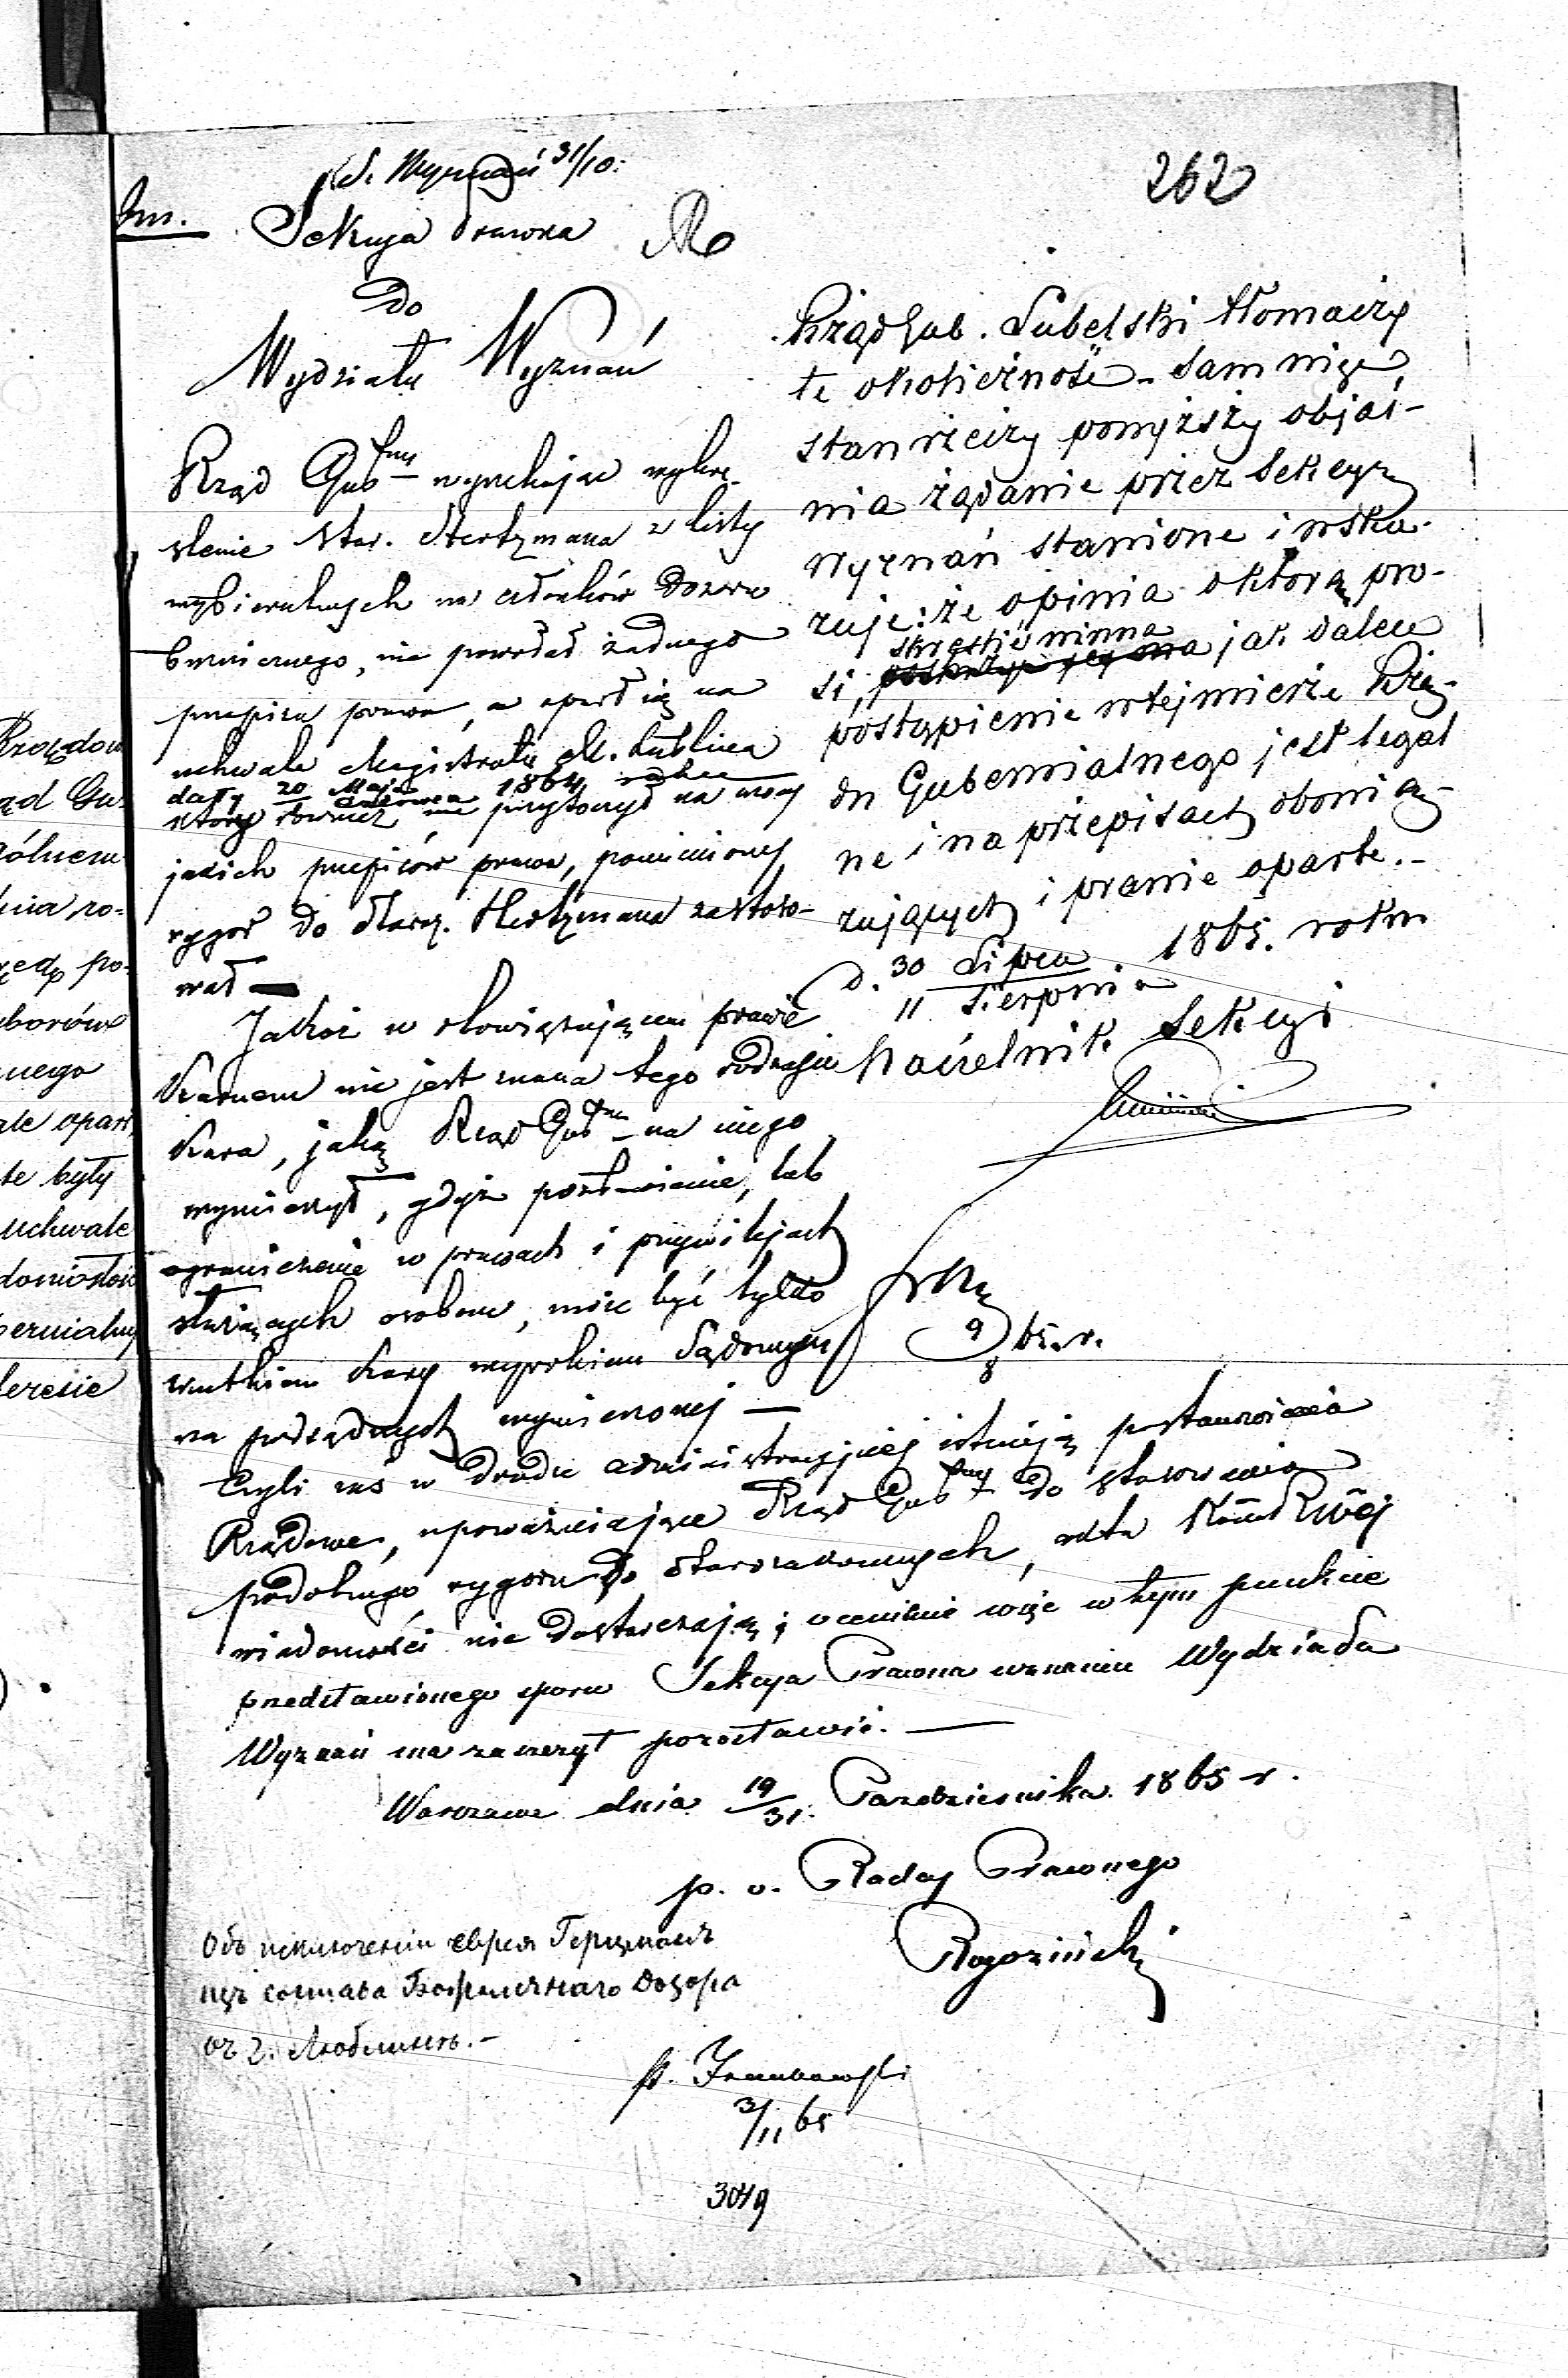 262
S. Wyznań 31/10.
Sekcya Prawna
Do
Wydziału Wyznań
Rząd Gubny wyrzekając wykre-
ślenie star. Hertzmana z listy
wybieralnych na członków Dozoru
bożniczego, nie powołał żadnego
przepisu prawa, a oparł się na
uchwale Magistratu M. Lublina
daty 20 Maja / Czerwca 1864 roku
który również nie przytoczył na mocy
jakich przepisów prawa, pomieniony
rygor do Starz. Hertzmana zastoso-
wał —
Jakoż w obowiązującem prawie
Karnem nie jest znana tego rodzaju
Kara, jaką Rząd Gubny na niego
wymierzył, gdyż pozbawienie, lub
ograniczenie w prawach i przywilejach
służących osobom, może być tylko
skutkiem Kary wyrokiem Sądowym
na podsądnych wymierzonej —
Czyli zaś w drodze administracyjnej istnieją postanowienia
Rządowe, upoważniające Rząd Gubny do stosowania
podobnego rygoru do starozakonnych, akta Kom. Rwéj
wiadomości nie dostarczają; ocenienie więc w tym punkcie
przedstawionego sporu Sekcya Prawna uznaniu Wydziału
Wyznań ma zaszczyt pozostawić. —
Warszawa dnia 19/31 Października 1865 r.
p. o. Radcy Prawnego
Rogoziński
Rząd Gub. Lubelski tłomaczy
te okoliczność – sam więc
stan rzeczy powyższy objaś-
nia żądanie przez Sekcyę
Wyznań stawione i wska-
zuje: że opinia o którą pro-
si, skreślić winna jak dalece
postąpienie w tej mierze Rzą-
du Gubernialnego jest legal
ne i na przepisach obowią-
zujących i prawie oparte.–
d. 30 Lipca / 11 Sierpnia 1865. roku
Naczelnik Sekcyi
9/8 65 r.
Объ исключеніи еврея Герцмана
изъ состава Божничнаго Дозора
въ г. Люблинѣ.–
3/11 65
3049
Rządow
ąd Gu-
gólnem
nia ro-
po-
borów
nego
ale opar
te były
uchwale
doniosłoś
berniałny
teresie